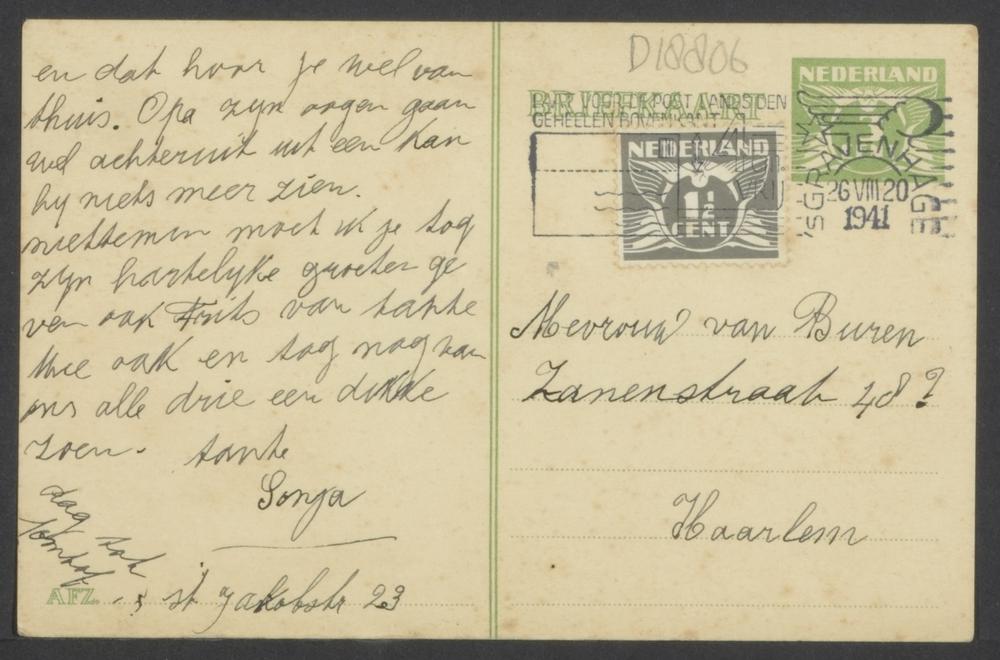 en dat hoor je wel van
thuis. Opa zyn oogen gaan
wel achteruit uit een kan
hy niets meer zien.
niettemin moet ik je tog
zyn hartelyke groeten ge
ven ook Frits van tante
Mie ook en tog nog van
ons alle drie een dikke
zoen. tante
Sonja
dag tot
AFZ. st Jakobstr 23
D18806
BRIEFKAART
GEHEELEN
NEDERLAND
NEDERLAND
1½
CENT
'S GRAVENHAGE
26 VIII 20
1941
2
Mevrouw van Buren
Zanenstraat 48?
Haarlem